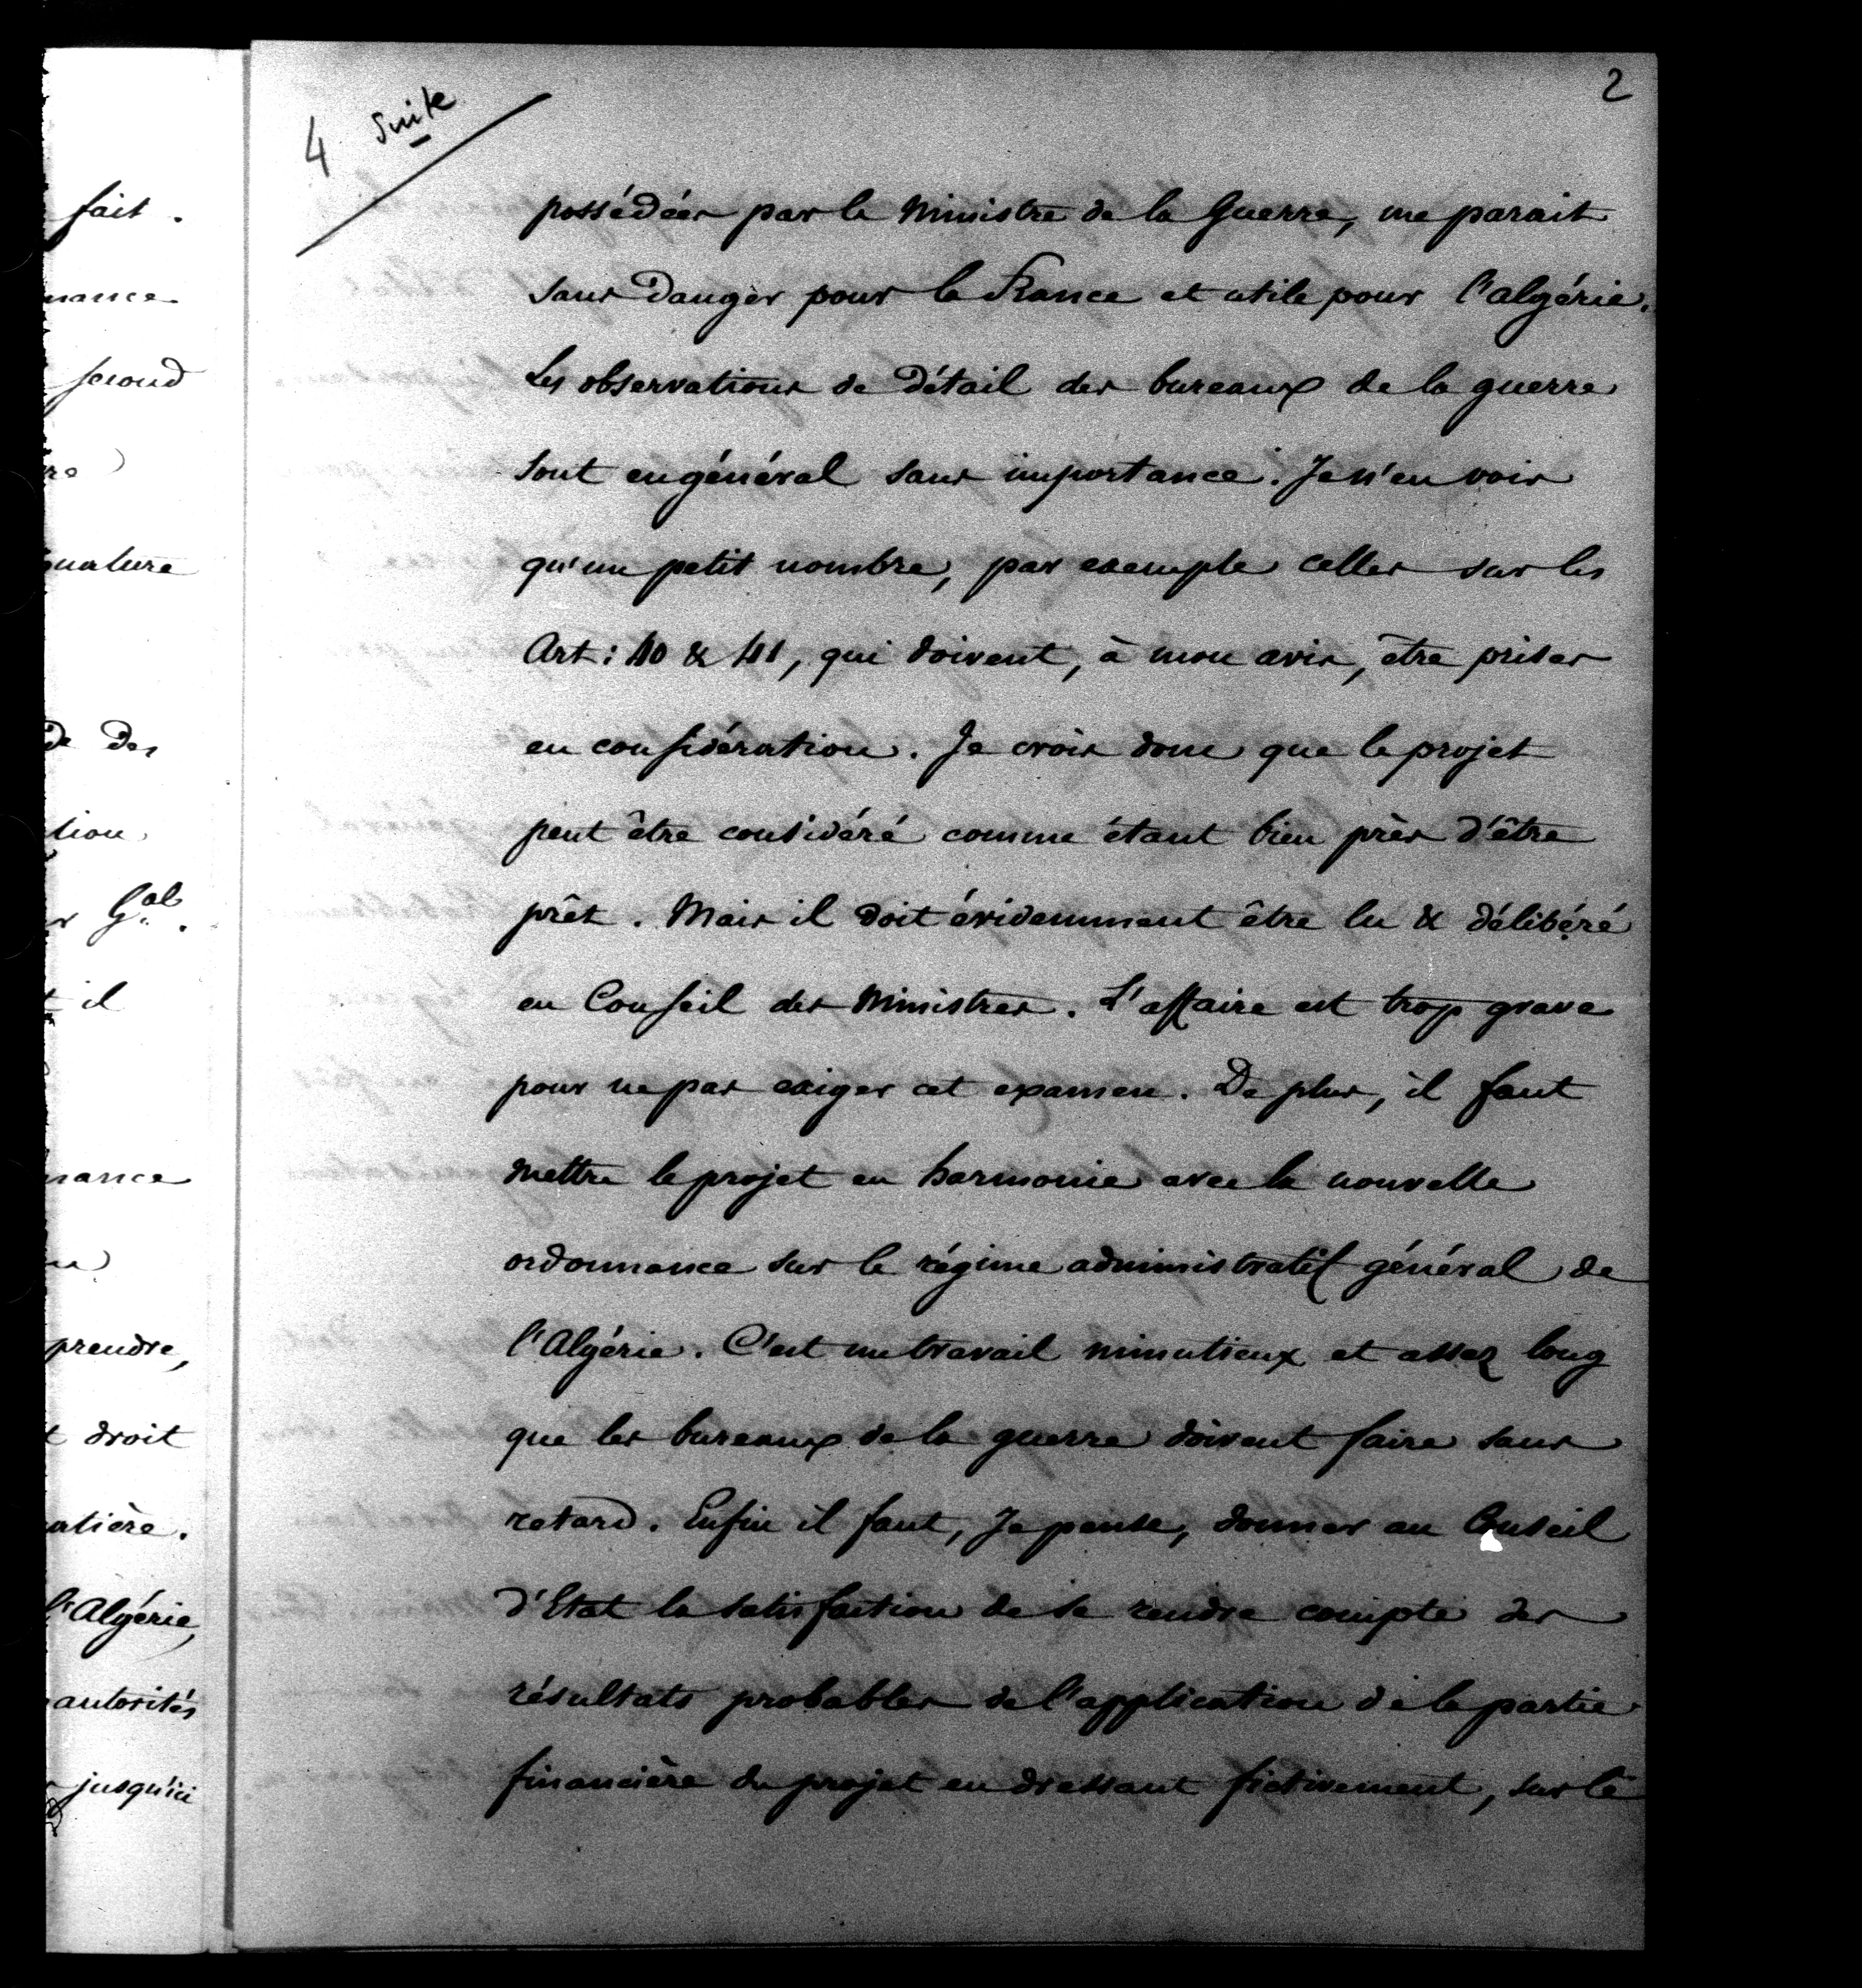 fait.
nance
second
re
nature
de des
tion
r Gal.
t il
nance
prendre,
t droit
atière.
l'Algérie,
autorités
jusqu'ici
2
4 suite
possédées par le Ministre de la Guerre, me parait
sans danger pour la France et utile pour l'algérie.
Les observations de détail des bureaux de la guerre
sont en général sans importance. Je n'en vois
qu'un petit nombre, par exemple celles sur les
Art: 40 & 41, qui doivent, à mon avis, être prises
en considération. Je crois donc que le projet
peut être considéré comme étant bien près d'être
prêt. Mais il doit évidemment être lu & délibéré
en Conseil des Ministres. L'affaire est trop grave
pour ne pas exiger cet examen. De plus, il faut
mettre le projet en harmonie avec la nouvelle
ordonnance sur le régime administratif général de
l'Algérie. C'est un travail minutieux et assez long
que les bureaux de la guerre doivent faire sans
retard. Enfin il faut, Je pense, donner au Conseil
d'Etat la satisfaction de se rendre compte des
résultats probables de l'application de la partie
financière du projet en dressant fictivement, sur le